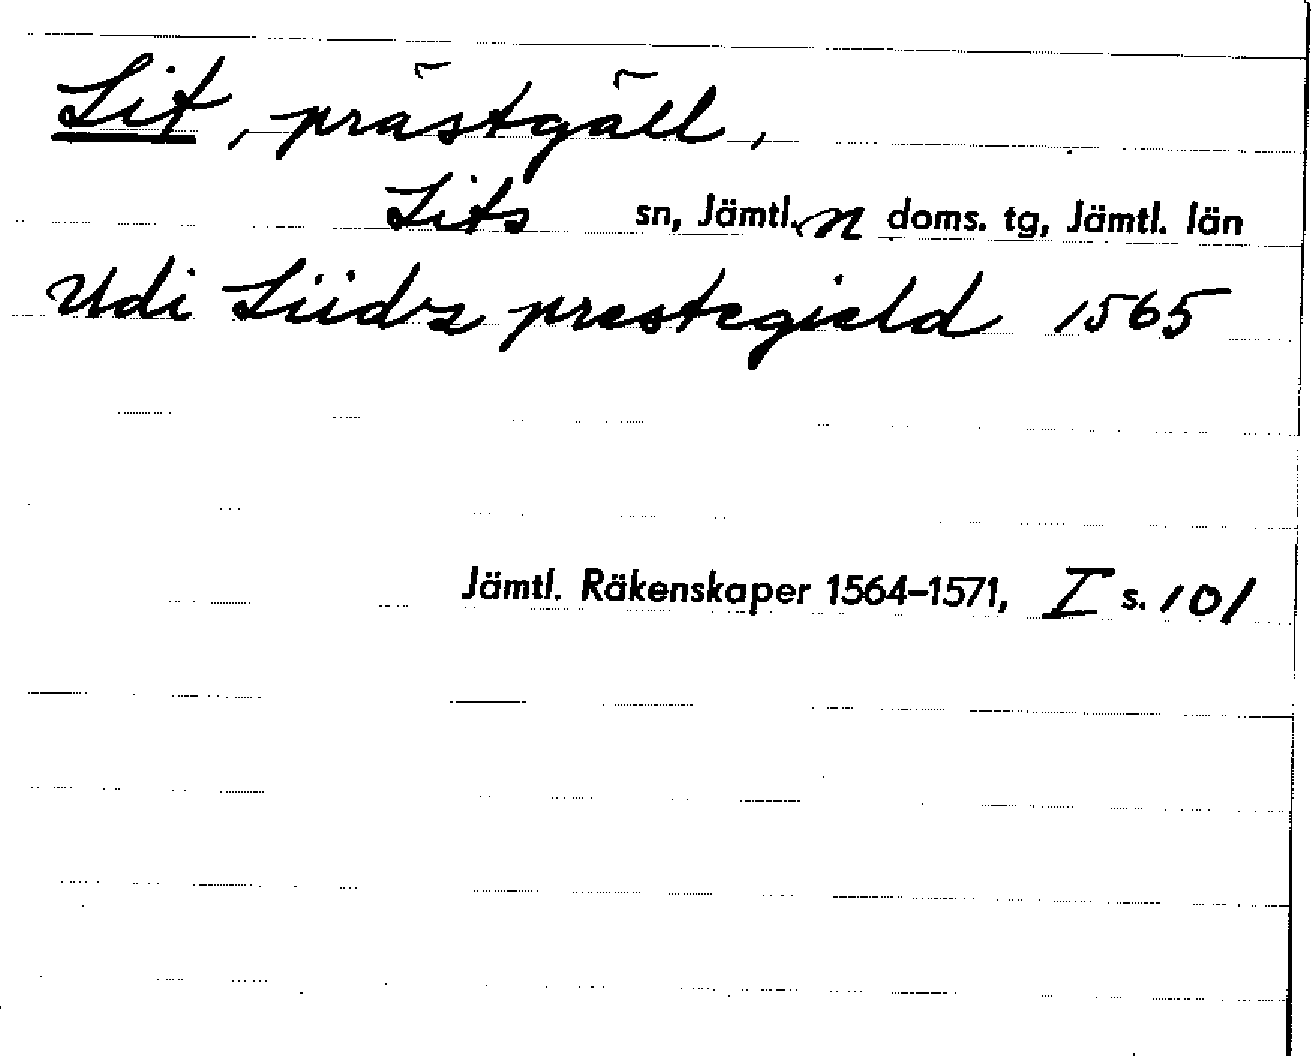 Lit, prästgäll,
Lits sn, Jämtl. n doms. tg, Jämtl. län
Udi Liidz prestegield 1565
Jämtl. Räkenskaper 1564–1571, I s. 101